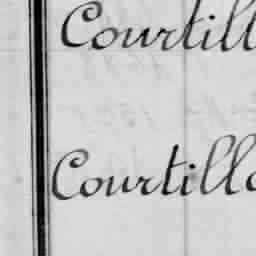 Courtill
Courtilla